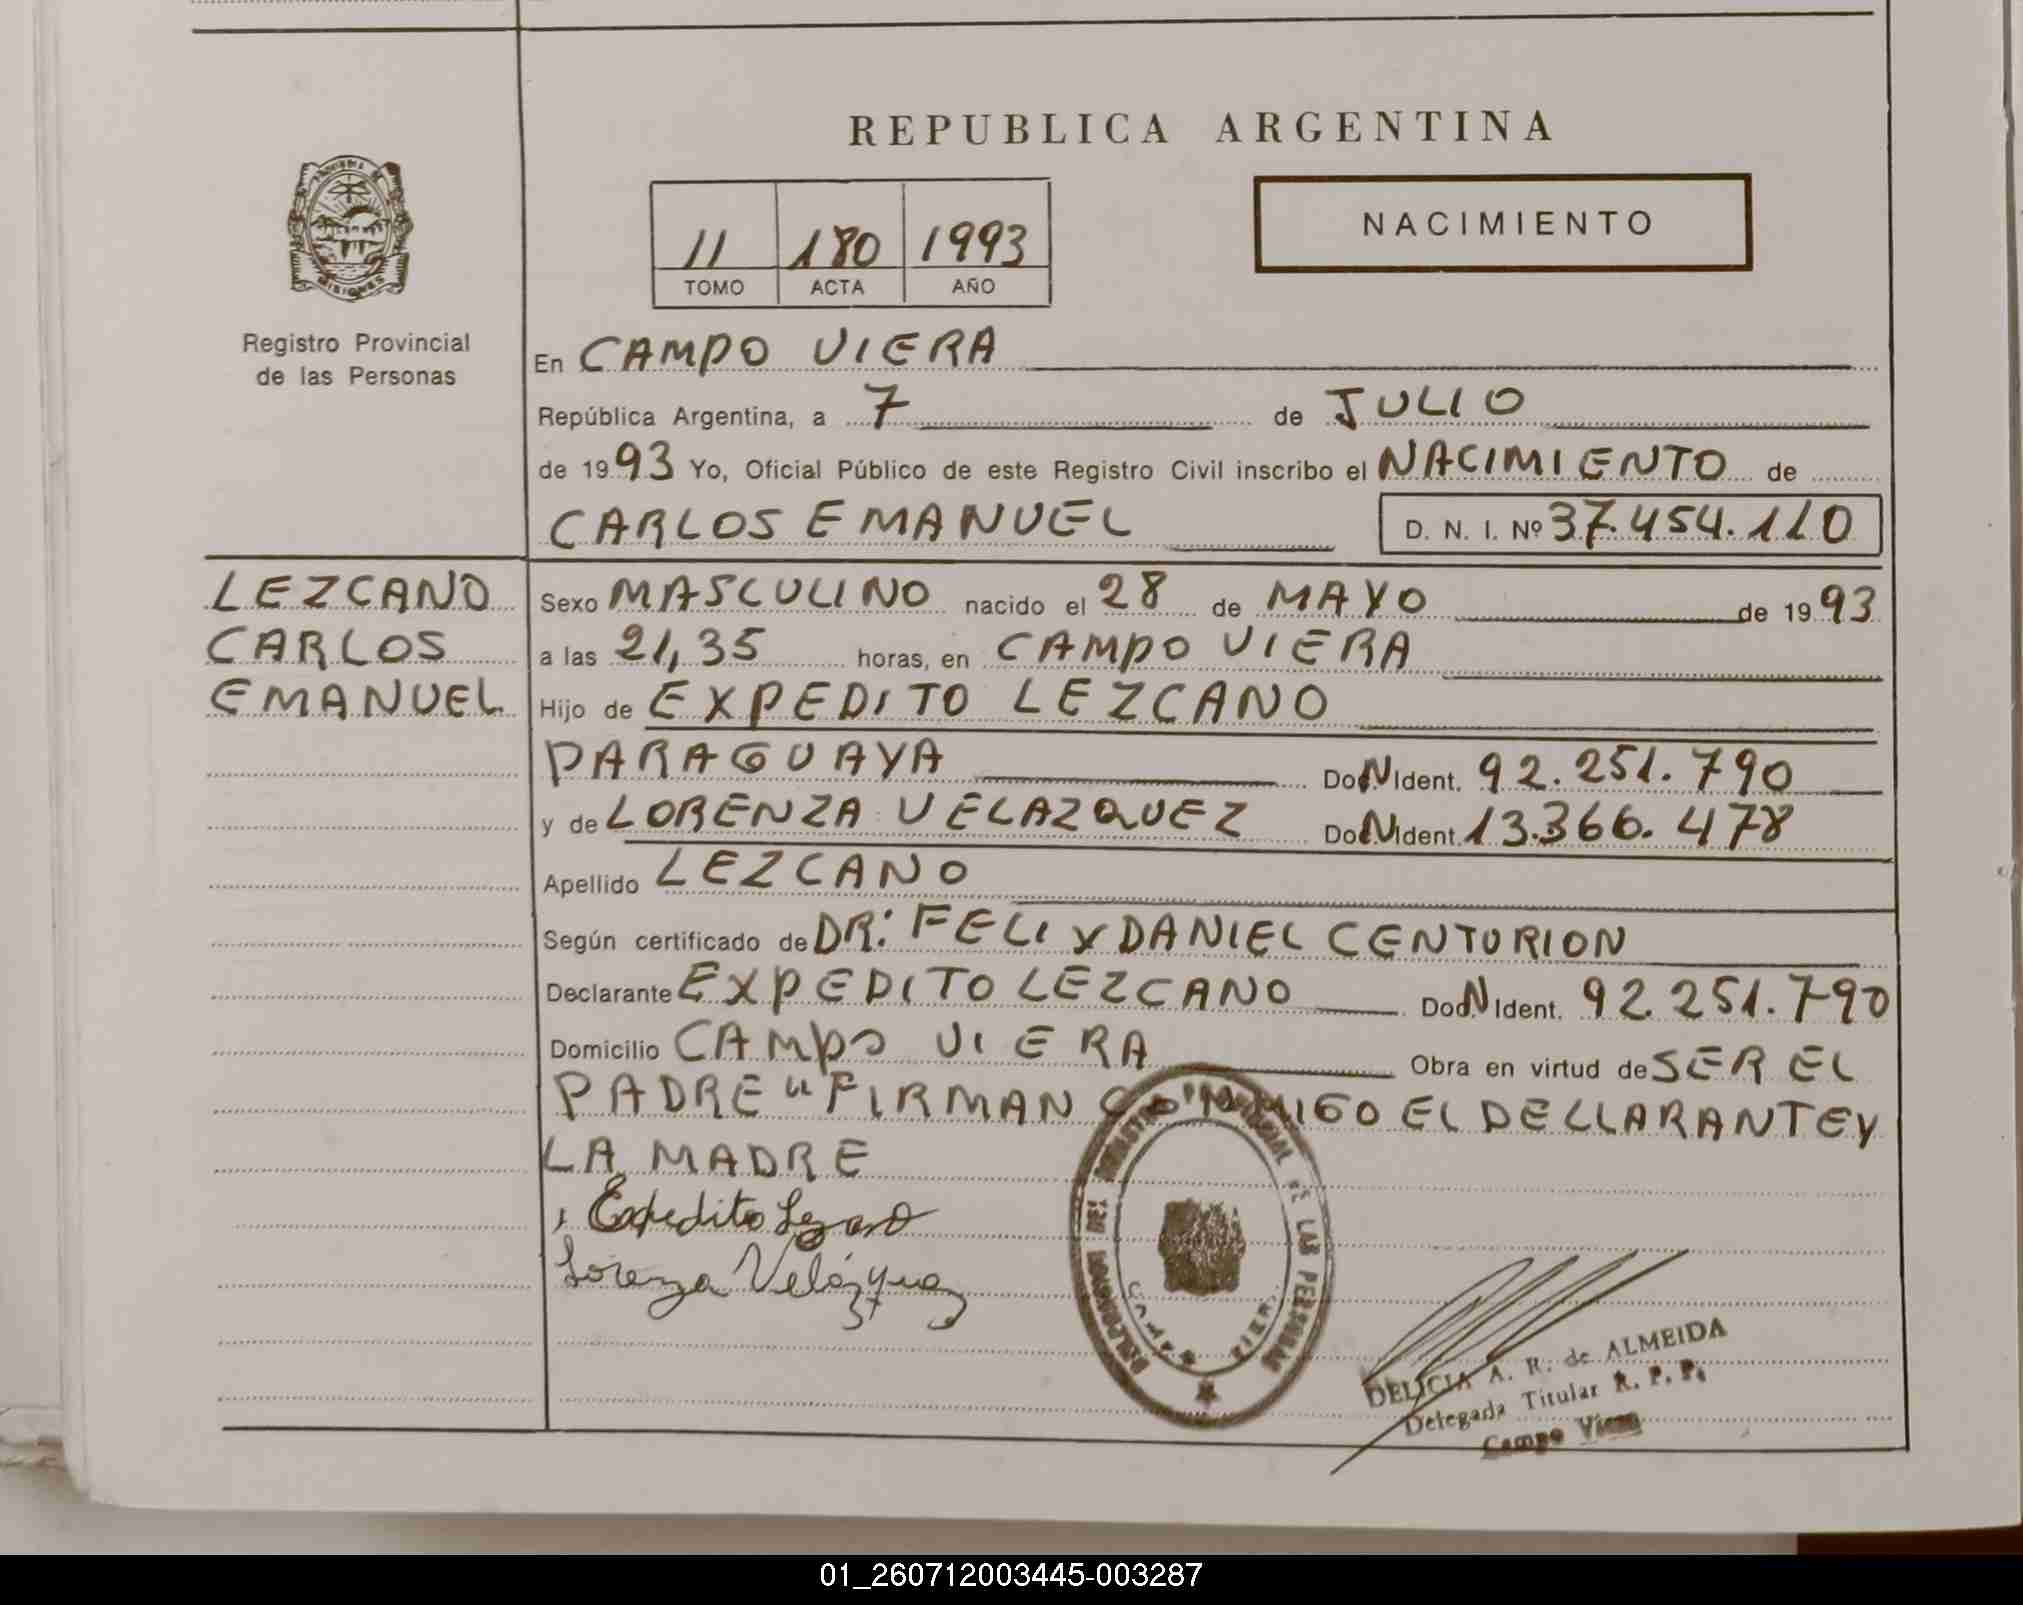 REPUBLICA ARGENTINA
NACIMIENTO
11 180 1993
TOMO ACTA AÑO
MISIONES
Registro Provincial
de las Personas
En CAMPO VIERA
República Argentina, a 7 de JULIO
de 1993 Yo, Oficial Público de este Registro Civil inscribo el NACIMIENTO de
CARLOS EMANUEL D. N. I. Nº 37.454.110
LEZCANO
CARLOS
EMANUEL
Sexo MASCULINO nacido el 28 de MAYO de 1993
a las 21,35 horas, en CAMPO VIERA
Hijo de EXPEDITO LEZCANO
PARAGUAYA Doc.N.Ident. 92.251.790
y de LORENZA VELAZQUEZ Doc.N.Ident. 13.366.478
Apellido LEZCANO
Según certificado de DR: FELIX DANIEL CENTURION
Declarante EXPEDITO LEZCANO Doc.N.Ident. 92.251.790
Domicilio CAMPO VIERA Obra en virtud de SER EL
PADRE " FIRMAN CONMIGO EL DELLARANTE Y
LA MADRE
Expedito Lezcano
Lorenza Velázquez
REGISTRO PROVINCIAL DE LAS PERSONAS
DELICIA A. R. de ALMEIDA
Delegada Titular R. P. P.
Campo Viera
01_260712003445-003287